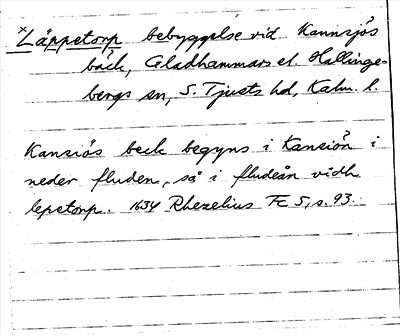 *Läppetorp bebyggelse vid Kannsjös
bäck, Gladhammars el. Hallinge-
bergs sn, S. Tjusts hd, Kalm. l.
Kansiös beck begyns i Kansiön i
neder fluden, så i fludeån vidh
lepetorp. 1634 Rhezelius Fc 5, s. 93.